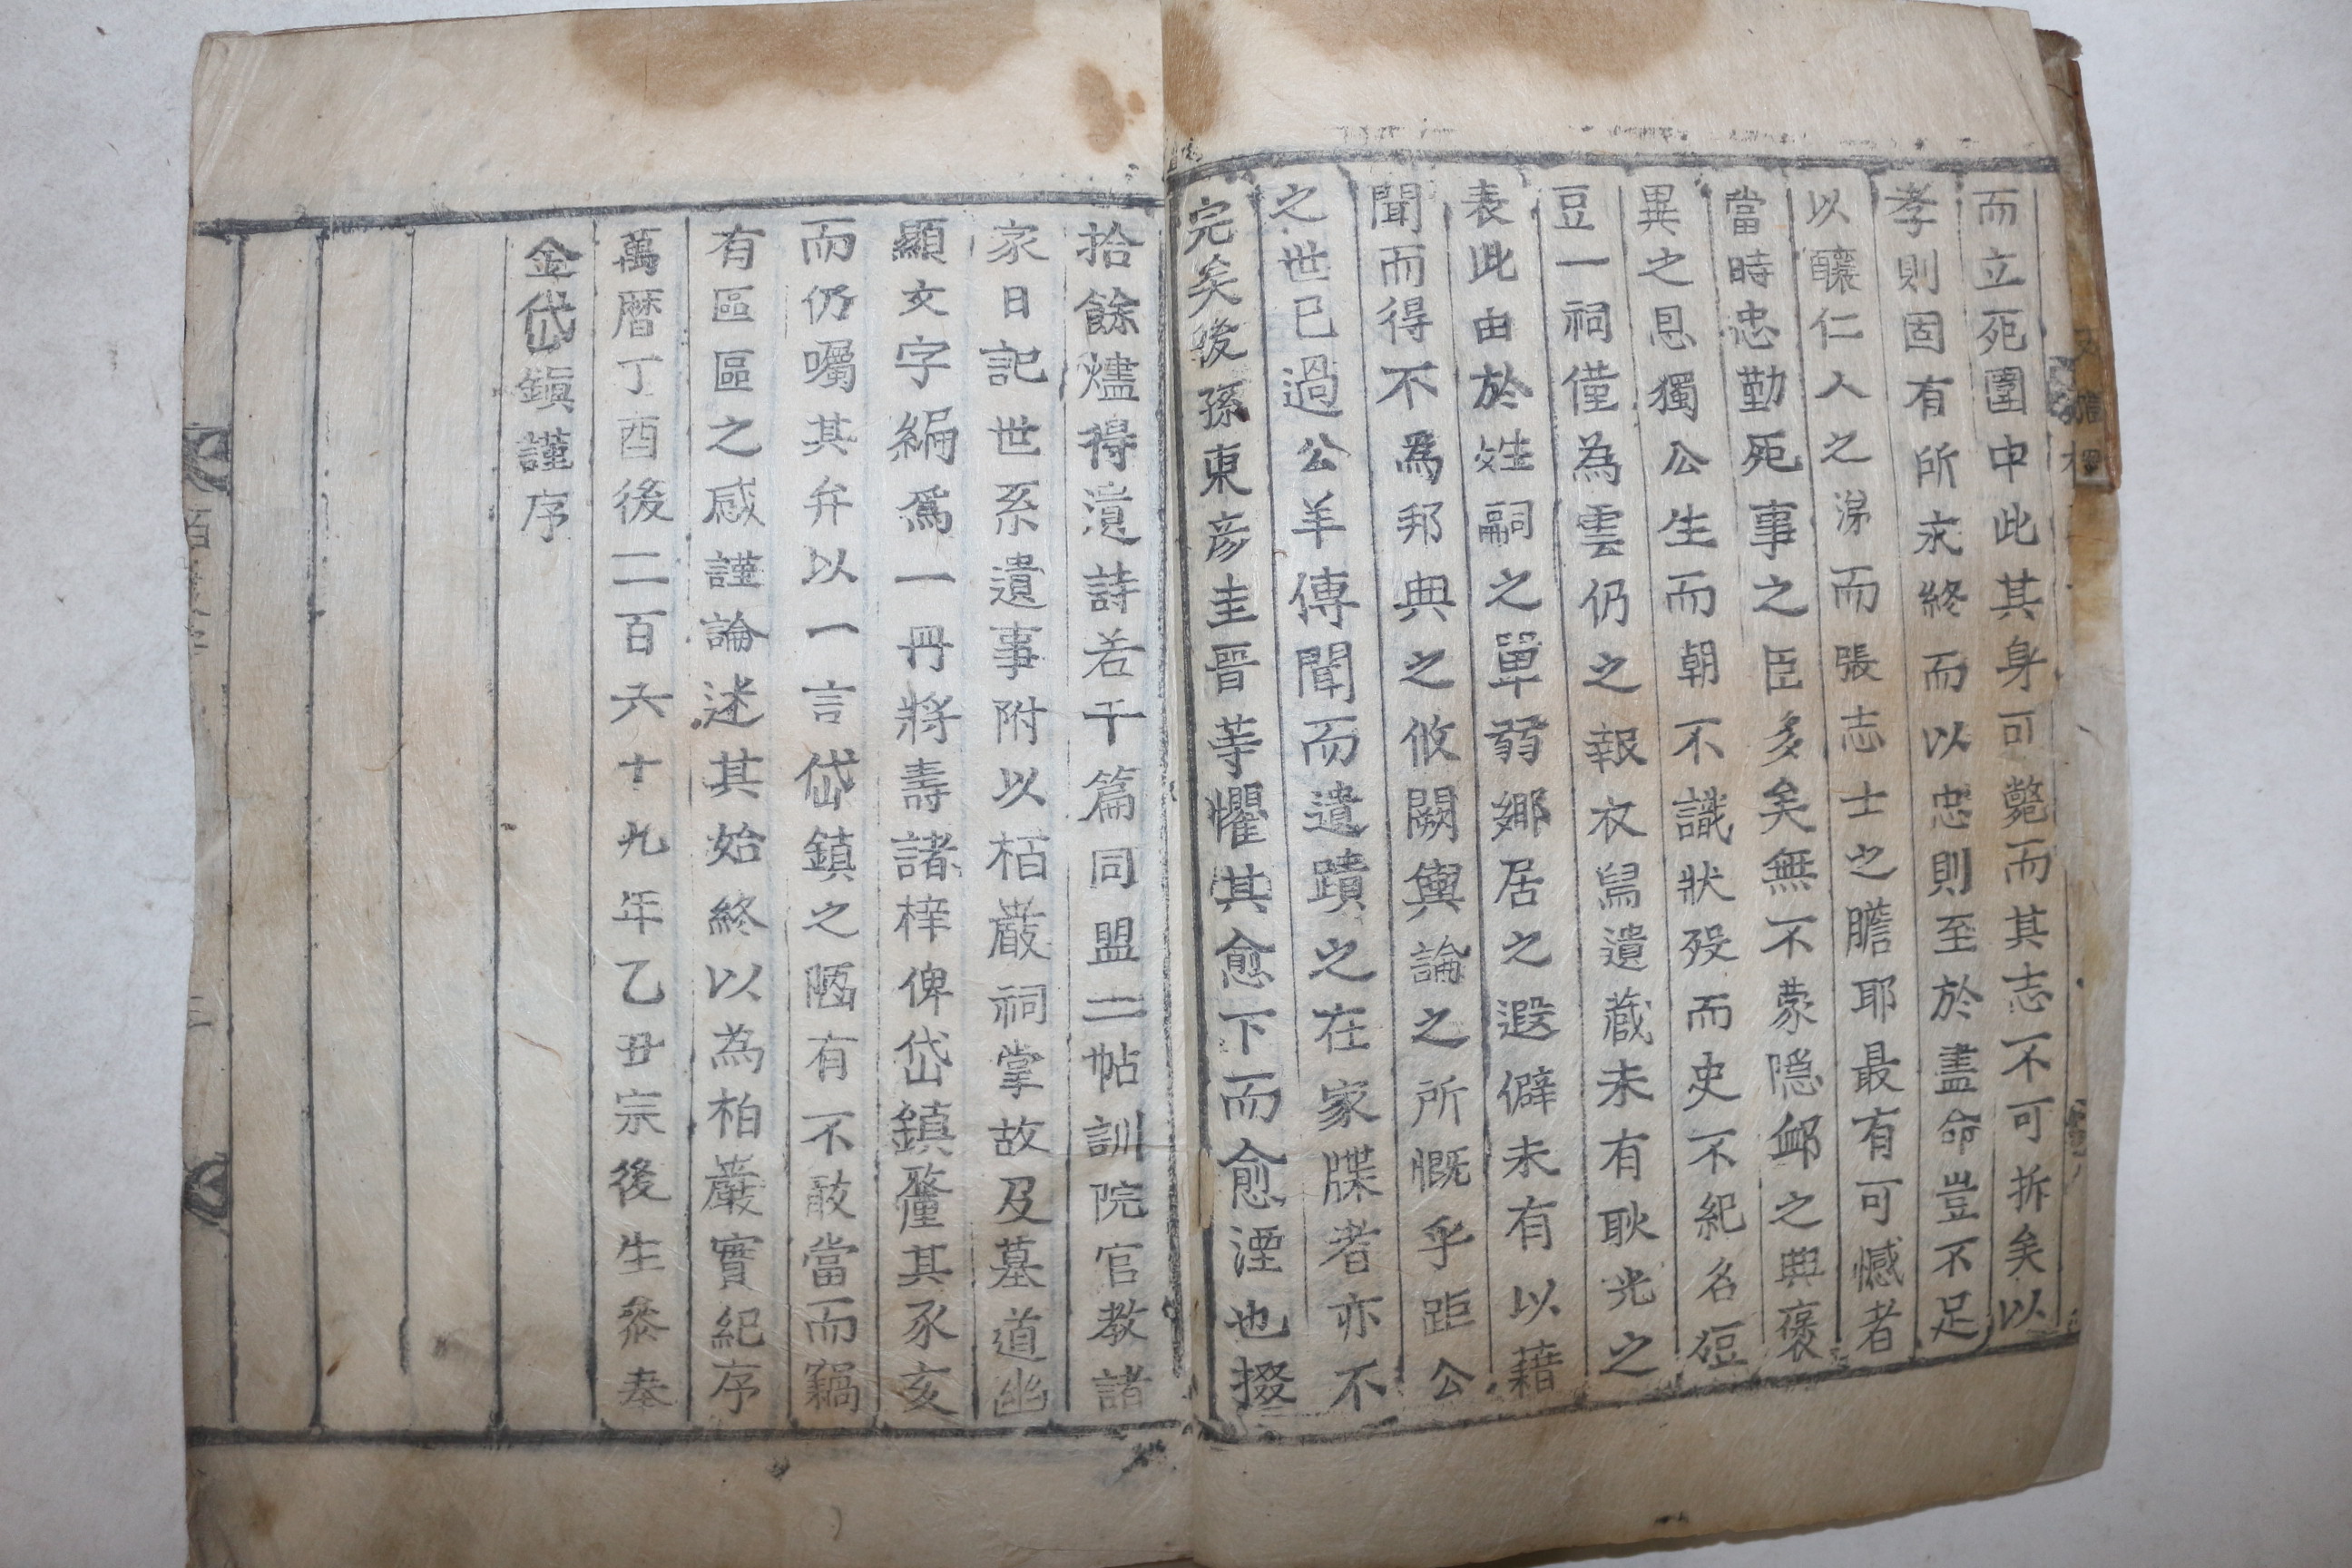 而立死圍中此其身可斃而其志不可拆矣以
孝則固有所求終而以忠則至於盡命豈不足
以釀仁人之涕而張志士之膽耶最有可憾者
當時忠勤死事之臣多矣無不蒙隠卹之典褒
異之恩獨公生而朝不識狀歿而史不紀名短
豆一祠僅為雲仍之報衣舄遺蔵未有耿光之
表此由於姓嗣之單弱鄉居之遐僻未有以藉
聞而得不爲邦典之攸闕輿論之所慨乎距公
之世已過公羊傳聞而遺蹟之在家牒者亦不
完矣後孫東彦圭晉等懼其愈下而愈湮也掇
拾餘燼得遺詩若干篇同盟二帖訓院官教諸
家日記世系遺事附以栢巖祠掌故及墓道幽
顯文字編爲一冊將壽諸梓俾岱鎮釐其豕亥
而仍囑其弁以一言岱鎮之陋有不敢當而竊
有區區之感謹論述其始終以為柏巖實紀序
萬曆丁酉後二百六十九年乙丑宗後生叅奉
金岱鎭謹序